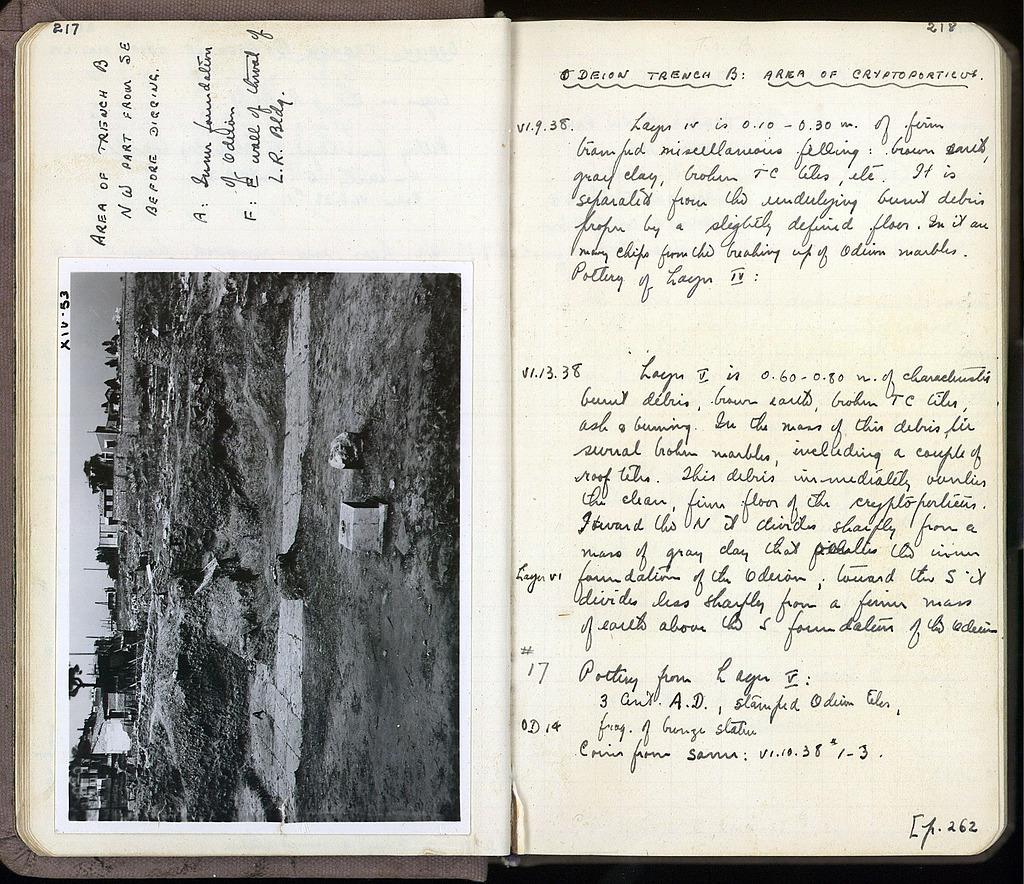 217
AREA OF TRENCH B
NW PART FROM SE
BEFORE DIGGING.
A: Inner foundation
of Odeion
F: E wall of thval of
L.R. Bldg.
XIV-53
A
218
ODEION TRENCH B: AREA OF CRYPTOPORTICUS.
VI.9.38. Layer IV is 0.10-0.30 m. of firm
tramped miscellaneous filling: brown earth,
gray clay, broken TC tiles, etc. It is
separated from the underlying burnt debris
proper by a slightly defined floor. In it are
many chips from the breaking up of Odeion marbles.
Pottery of Layer IV:
VI.13.38 Layer V is 0.60-0.80 m. of characteristic
burnt debris, brown earth, broken TC tiles,
ash & burning. In the mass of this debris lie
several broken marbles, including a couple of
roof tiles. This debris immediately overlies
the clean, firm floor of the cryptoporticus.
Toward the N it divides sharply from a
mass of gray clay that the inner
Layer VI foundation of the Odeion; toward the S it
divides less sharply from a firmer mass
of earth above the S foundation of the Odeion
#
17 Pottery from Layer V:
3 Cent. A.D., stamped Odeion tiles,
OD 14 frag. of bronze statue
Coins from same: VI.10.38 #1-3.
[p. 262